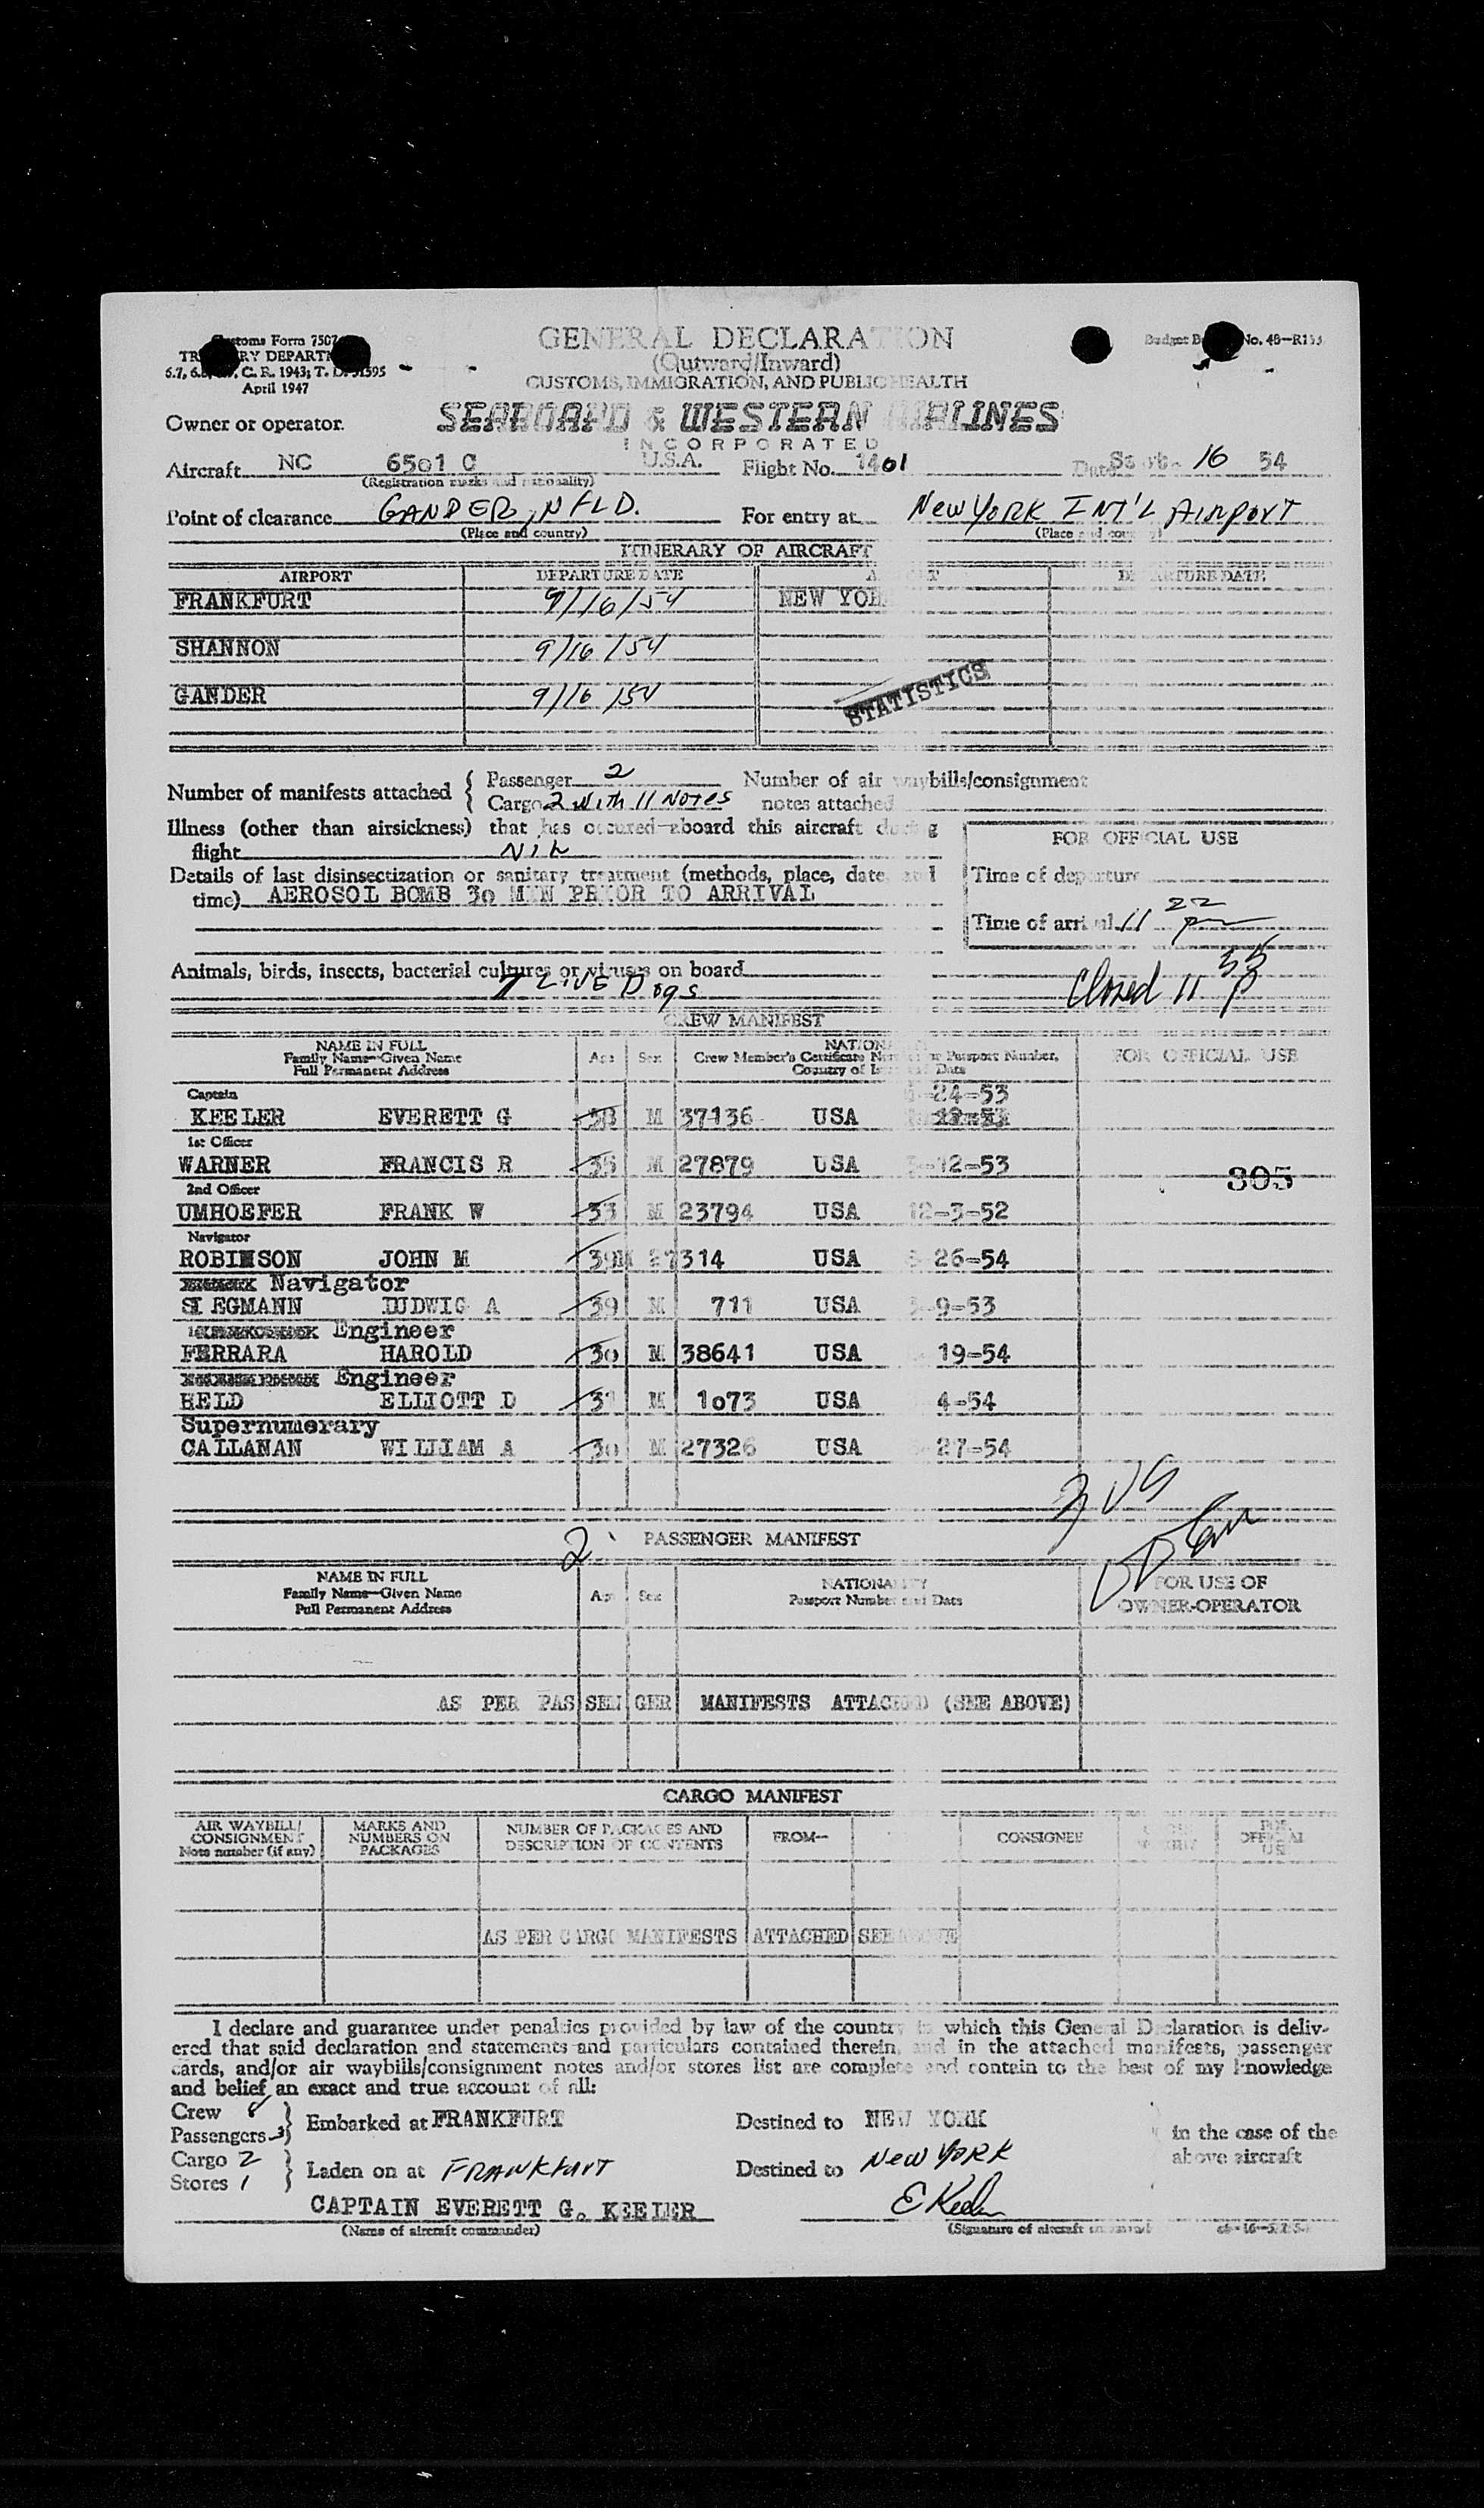 Customs Form 7507
TREASURY DEPARTMENT
April 1947
GENERAL DECLARATION
(Outward/Inward)
CUSTOMS, IMMIGRATION, AND PUBLIC HEALTH
Owner or operator. SEABOARD & WESTERN AIRLINES
INCORPORATED
Aircraft NC 6501 C U.S.A. Flight No. 1401 Date Sept. 16 54
(Registration marks and nationality)
Point of clearance GANDER, NFLD. For entry at New YORK INT'L AIRPORT
(Place and country) (Place and country)
ITINERARY OF AIRCRAFT
AIRPORT DEPARTURE DATE AIRPORT DEPARTURE DATE
FRANKFURT 9/16/54 NEW YORK
SHANNON 9/16/54
GANDER 9/16/54
STATISTICS
Number of manifests attached { Passenger 2 Number of air waybills/consignment
Cargo 2 with 11 Notes notes attached
Illness (other than airsickness) that has occured aboard this aircraft during
flight NiL
FOR OFFICIAL USE
Details of last disinsectization or sanitary treatment (methods, place, date, and
time) AEROSOL BOMB 30 MIN PRIOR TO ARRIVAL
Time of departure
Time of arrival 11 22 pm
Animals, birds, insects, bacterial cultures or viruses on board
LIVE Dogs
Closed 11 55 P
CREW MANIFEST
NAME IN FULL
Family Name—Given Name
Full Permanent Address
Age Sex NATIONALITY
Crew Member's Certificate Number or Passport Number,
Country of Issue and Date
FOR OFFICIAL USE
Captain 24-53
KEELER EVERETT G 38 M 37136 USA
1st Officer
WARNER FRANCIS R 35 M 27879 USA 12-53
305
2nd Officer
UMHOEFER FRANK W 33 M 23794 USA 12-3-52
Navigator
ROBINSON JOHN M 39 M 27314 USA 26-54
Navigator
SIEGMANN LUDWIG A 39 M 711 USA 9-53
Engineer
FERRARA HAROLD 30 M 38641 USA 19-54
Engineer
HELD ELLIOTT D M 1073 USA 4-54
Supernumerary
CALLANAN WILLIAM A 30 M 27326 USA 27-54
2 PASSENGER MANIFEST
NAME IN FULL
Family Name—Given Name
Full Permanent Address
Age Sex NATIONALITY
Passport Number and Date
FOR USE OF
OWNER-OPERATOR
AS PER PASSENGER MANIFESTS ATTACHED (SEE ABOVE)
CARGO MANIFEST
AIR WAYBILL/
CONSIGNMENT
Note number (if any)
MARKS AND
NUMBERS ON
PACKAGES
NUMBER OF PACKAGES AND
DESCRIPTION OF CONTENTS
FROM—
CONSIGNEE
FOR
OFFICIAL
USE
AS PER CARGO MANIFESTS ATTACHED SEE ABOVE
I declare and guarantee under penalties provided by law of the country in which this General Declaration is deliv-
ered that said declaration and statements and particulars contained therein, and in the attached manifests, passenger
cards, and/or air waybills/consignment notes and/or stores list are complete and contain to the best of my knowledge
and belief an exact and true account of all:
Crew 8
Passengers 3 } Embarked at FRANKFURT Destined to NEW YORK in the case of the
Cargo 2 above aircraft
Stores 1 } Laden on at FRANKFURT Destined to New YORK
CAPTAIN EVERETT G. KEELER E Keeler
(Name of aircraft commander) (Signature of aircraft commander)